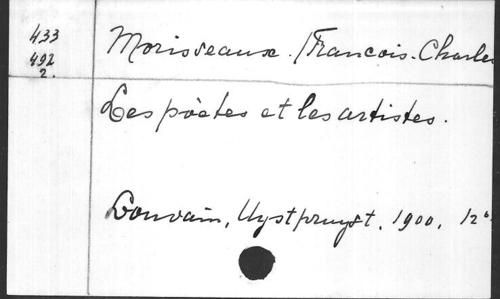 433
492
2.
Morisseaux. Francois-Charles
Les poètes et les artistes.
Louvain, Uystpruyst, 1900, 12°